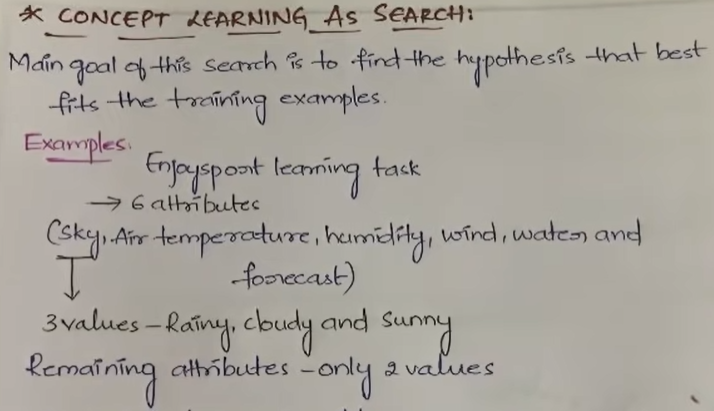 * CONCEPT LEARNING AS SEARCH:
Main goal of this search is to find the hypothesis that best
fits the training examples.
Examples.
Enjoysport learning task
→ 6 attributes
(Sky, Air temperature, humidity, wind, water and
forecast)
3 values - Rainy, cloudy and sunny
Remaining attributes - only 2 values